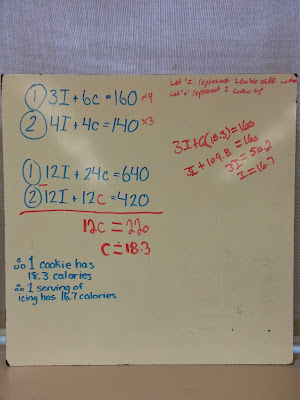 Let "I" represent 1 double stuff
Let "c" represent 1
① 3I + 6c = 160 ×4
② 4I + 4c = 140 ×3
3I + 6(18.3) = 160
3I + 109.8 = 160
3I = 50.2
I = 16.7
① 12I + 24c = 640
② 12I + 12c = 420
12c = 220
c ≐ 18.3
∴ 1 cookie has
18.3 calories
∴ 1 serving of
icing has 16.7 calories